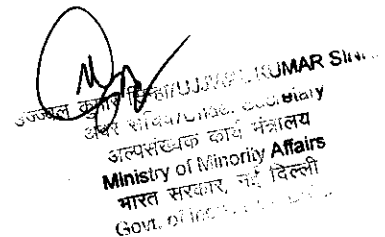 उज्जवल कुमार सिन्हा/UJJWAL KUMAR
अवर सचिव/Under Secretary
अल्पसंख्यक कार्य मंत्रालय
Ministry of Minority Affairs
भारत सरकार, नई दिल्ली
Govt. of